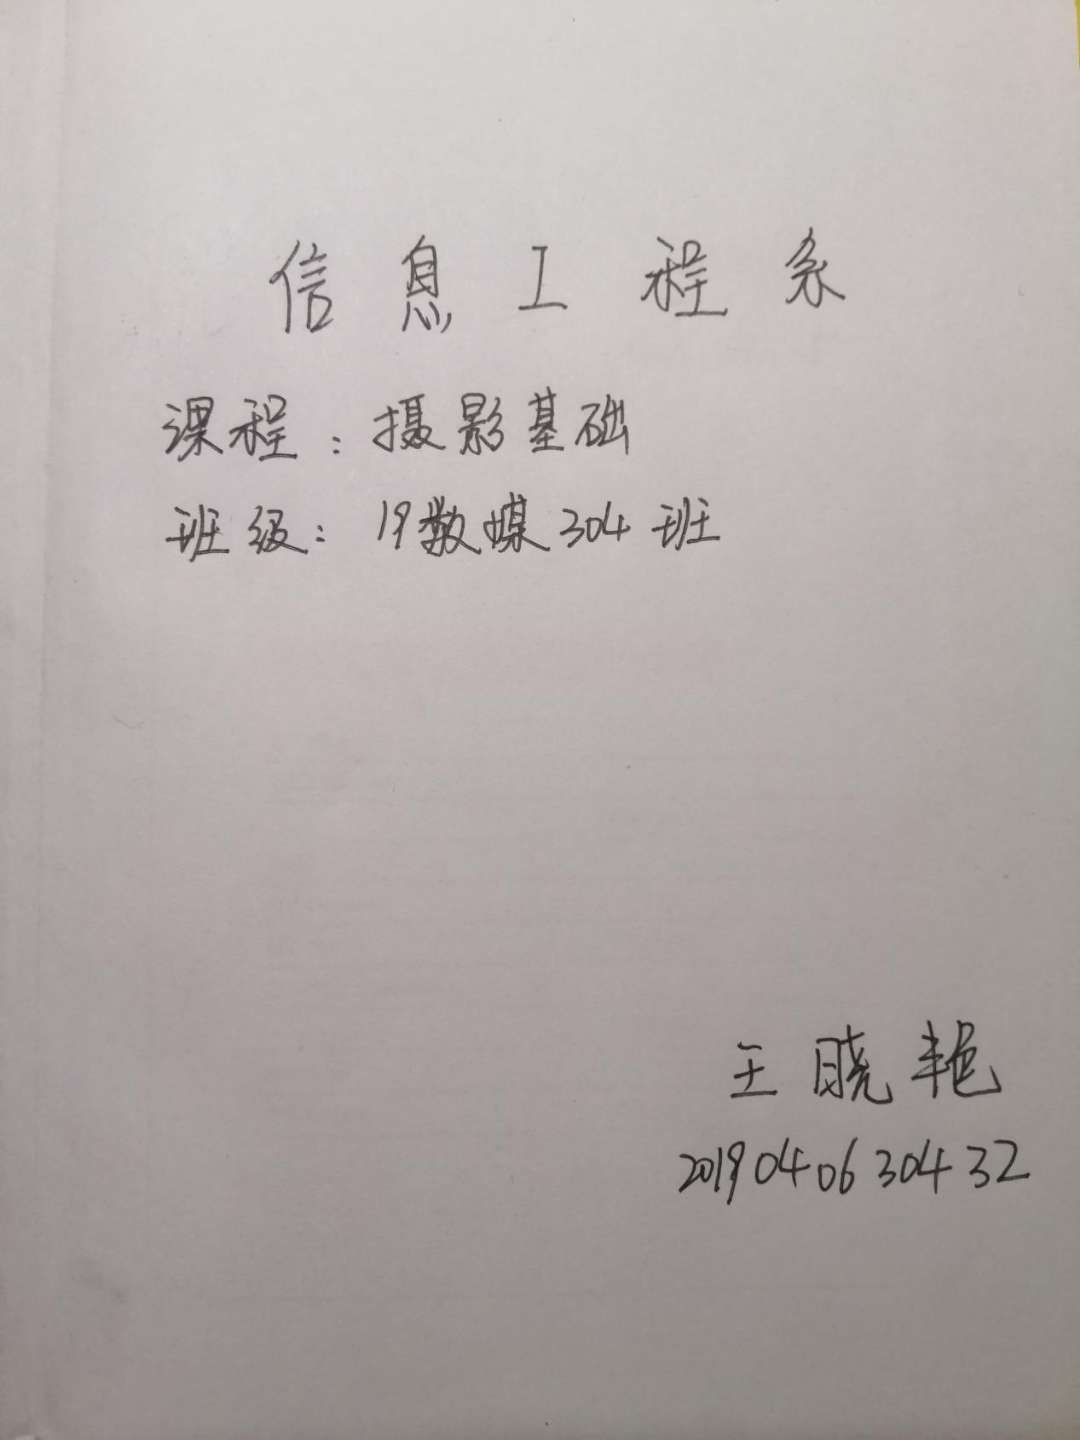 信息工程系
课程：摄影基础
班级：19数媒304班
王晓艳
2019040630432